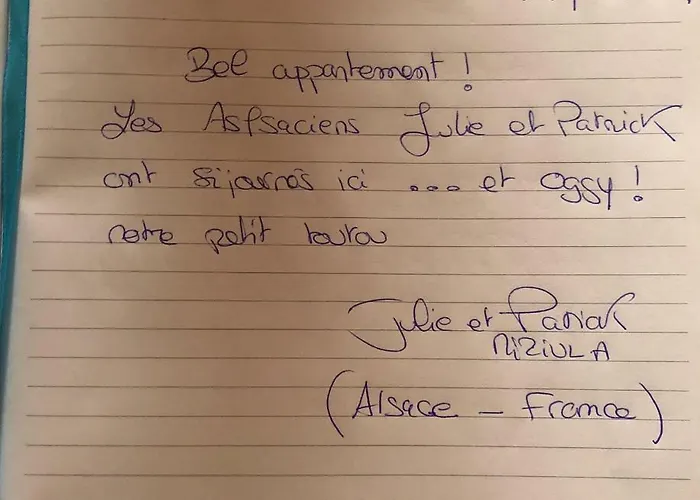 Bel appartement !
Les Alsaciens Julie et Patrick
ont séjournés ici ... et oggy !
notre petit toutou
Julie et Patrick
MIZIULA
(Alsace - France)